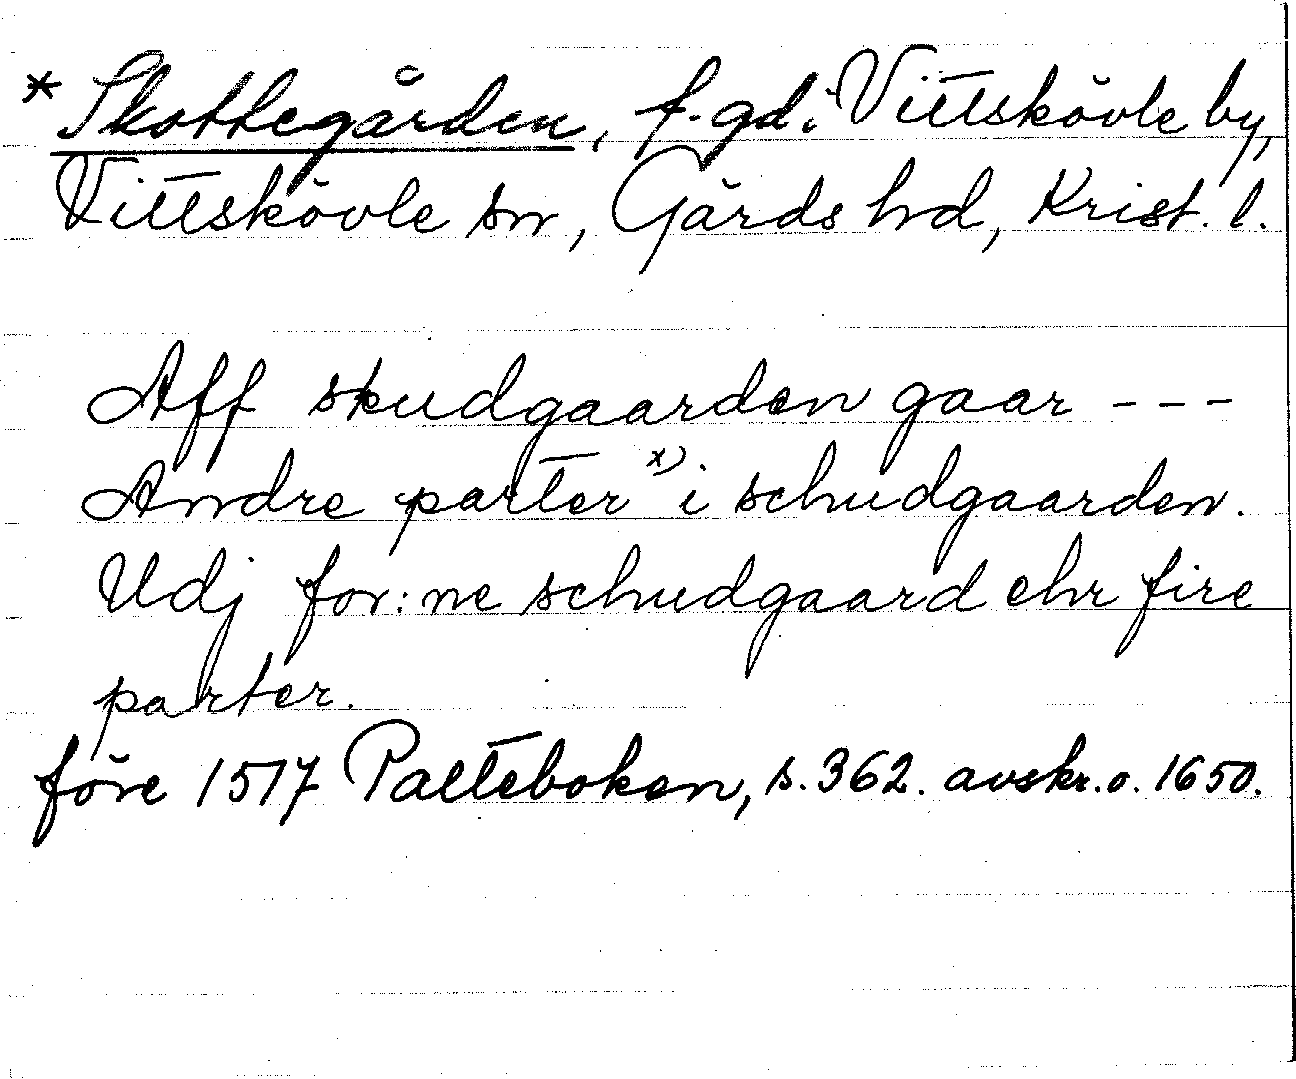 * Skottegården, f. gd i Vittskövle by,
Vittskövle sn, Gärds hd, Krist. l.
Aff skudgaarden gaar - - -
Andre parter x) i schudgaarden.
Udj for:ne schudgaard ehr fire
parter.
före 1517 Palteboken, s. 362. avskr. o. 1650.